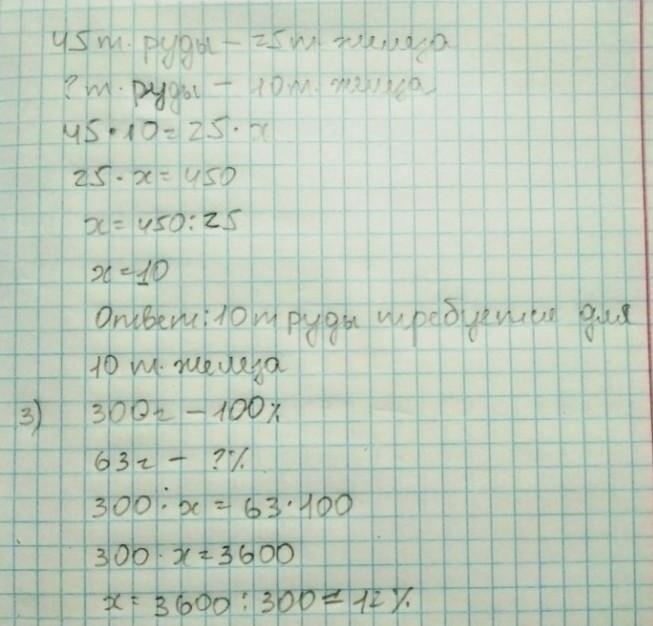 45 т. руды - 25 т. железа
? т. руды - 10 т. железа
45 · 10 = 25 · x
25 · x = 450
x = 450 : 25
x = 10
Ответ: 10 т руды требуется для
10 т. железа
3) 300г - 100%
63г - ?%
300 : x = 63 · 100
300 · x = 3600
x = 3600 : 300 = 12%